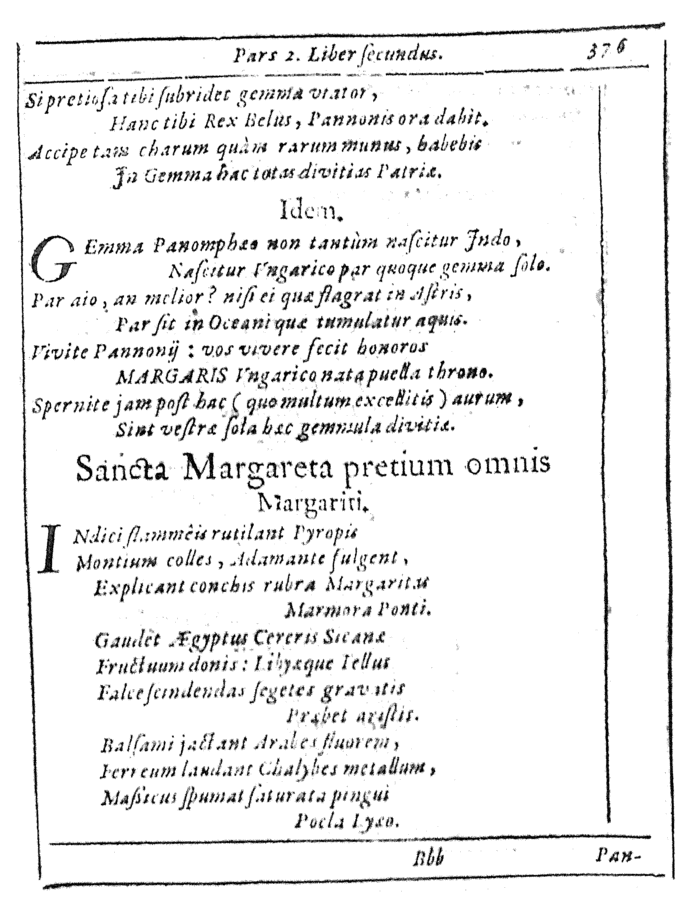 Pars 2. Liber ſecundus. 376
Si pretioſa tibi ſubridet gemma viator,
Hanc tibi Rex Belus, Pannonis ora dabit.
Accipe tam charum quàm rarum munus, habebis
In Gemma hac totas divitias Patriæ.
Idem.
GEmma Panomphæo non tantùm naſcitur Indo,
Naſcitur Vngarico par quoque gemma ſolo.
Par aio, an melior? niſi ei quæ flagrat in Aſtris,
Par ſit in Oceani quæ tumulatur aquis.
Vivite Pannonij : vos vivere fecit honoros
MARGARIS Vngarico nata puella throno.
Spernite jam poſt hac ( quo multum excellitis ) aurum,
Sint veſtræ ſola hæc gemmula divitiæ.
Sancta Margareta pretium omnis
Margariti.
INdici flammêis rutilant Pyropis
Montium colles, Adamante fulgent,
Explicant conchis rubra Margaritas
Marmora Ponti.
Gaudet Ægyptus Cereris Sicanæ
Fructuum donis : Libyæque Tellus
Falce ſcindendas ſegetes gravatis
Præbet ariſtis.
Balſami jactant Arabes fluorem,
Ferreum laudant Chalybes metallum,
Maſsicus ſpumat ſaturata pingui
Pocla Lyæo.
Bbb Pan-